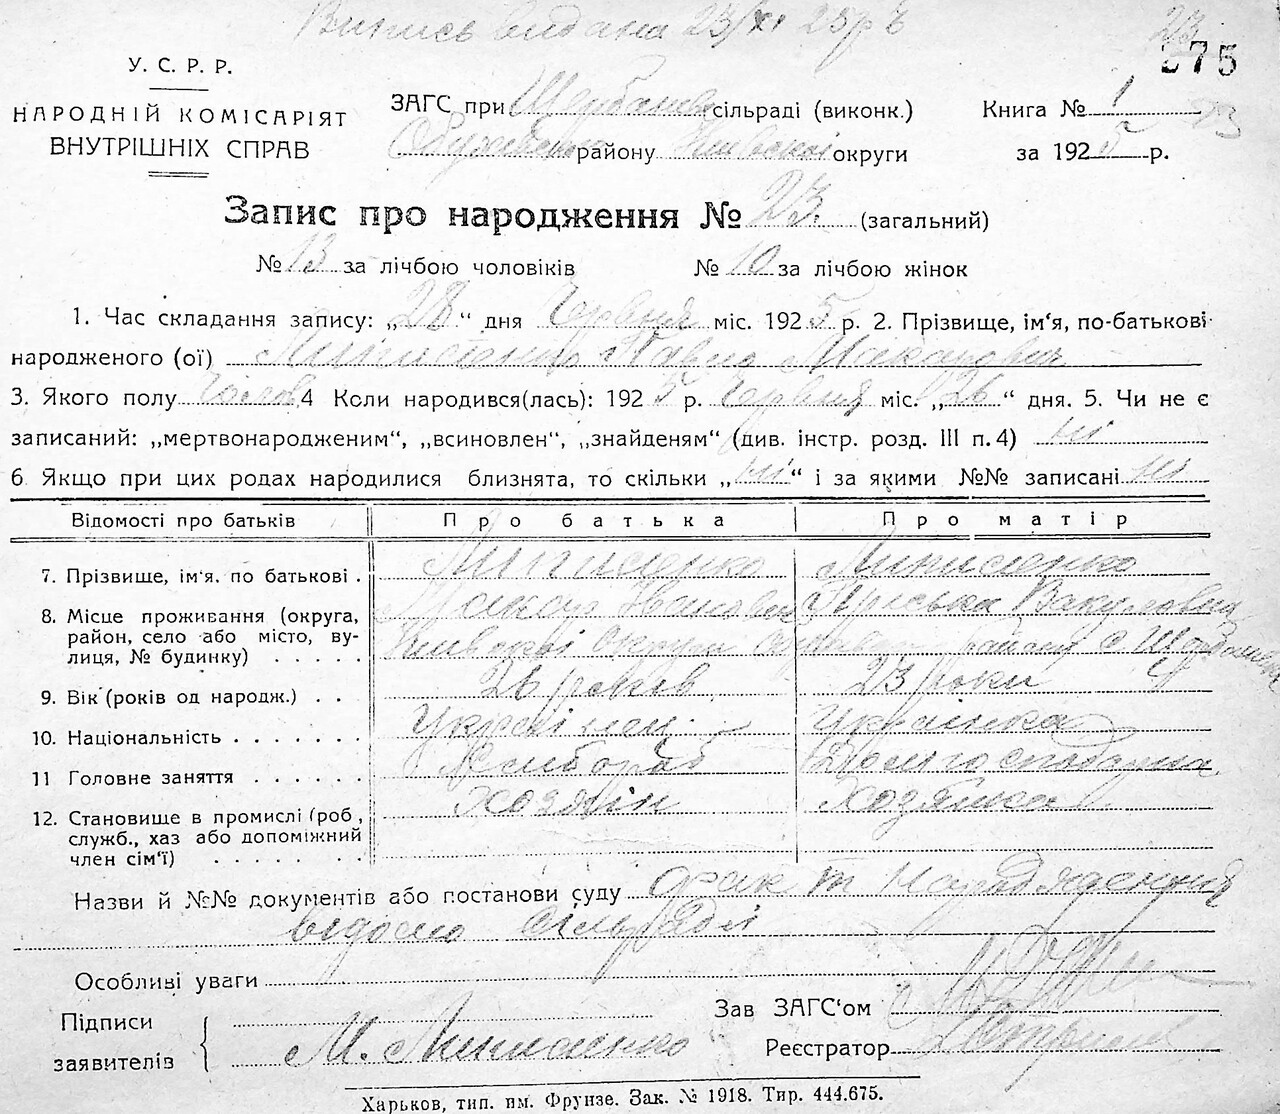 Випись видана 23/XI 25 р
23
275
У. С. Р. Р.
НАРОДНІЙ КОМІСАРІЯТ
ВНУТРІШНІХ СПРАВ
ЗАГС при сільраді (виконк.)
району Київської округи
Книга № 1
за 1925 р.
Запис про народження № 23. (загальний)
№ 13 за лічбою чоловіків № 10 за лічбою жінок
1. Час складання запису: „28“ дня Червня міс. 1925 р. 2. Прізвище, ім'я, по-батькові
народженого (ої) Павло Макарович
3. Якого полу 4 Коли народився(лась): 1925 р. Червня міс. „26“ дня. 5. Чи не є
записаний: „мертвонародженим“, „всиновлен“, „знайденям“ (див. інстр. розд. III п. 4) ні
6 Якщо при цих родах народилися близнята, то скільки „ні“ і за якими №№ записані ні
Відомості про батьків Про батька Про матір
7. Прізвище, ім'я. по батькові .
Макар Іванович Вакуловна
8. Місце проживання (округа,
район, село або місто, ву-
лиця, № будинку) . . . . . Київської округи району с
9. Вік (років од народж.) . . 26 років 23 роки
10. Національність . . . . . . . Українец Українка
11 Головне заняття . . . . . . Хлібороб Домогосподарка
12. Становище в промислі (роб., хозяїн хозяйка
служб., хаз або допоміжний
член сім'ї) . . . . . . .
Назви й №№ документів або постанови суду факт народження
відомо сільраді
Особливі уваги
Підписи
заявителів М.
Зав ЗАГС'ом
Реєстратор
Харьков, тип. им. Фрунзе. Зак. № 1918. Тир. 444.675.